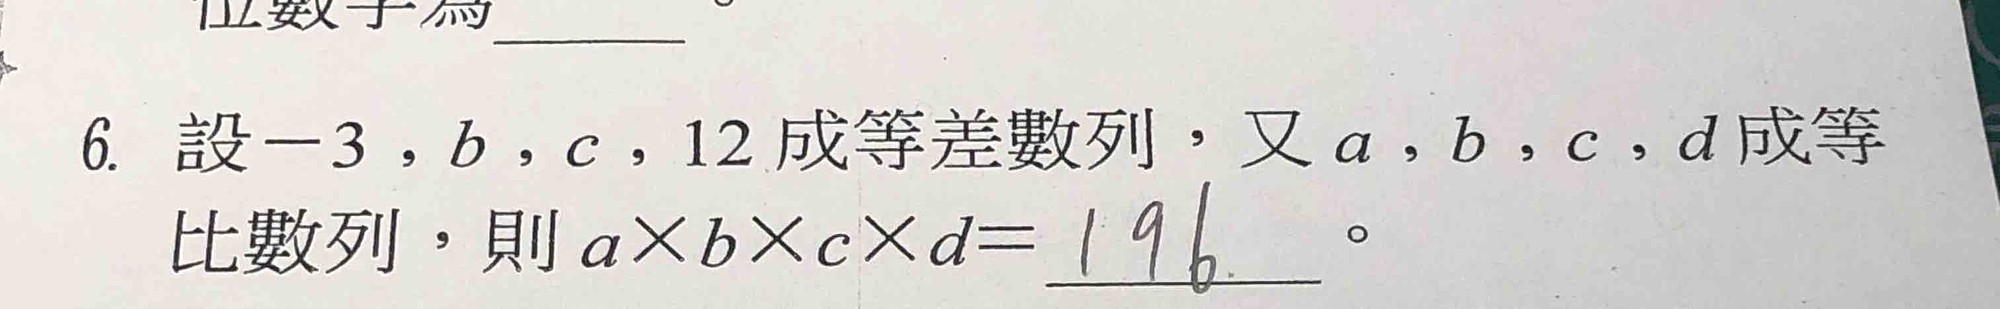 位數字為______。
6. 設－3，b，c，12成等差數列，又a，b，c，d成等
比數列，則a×b×c×d＝196。